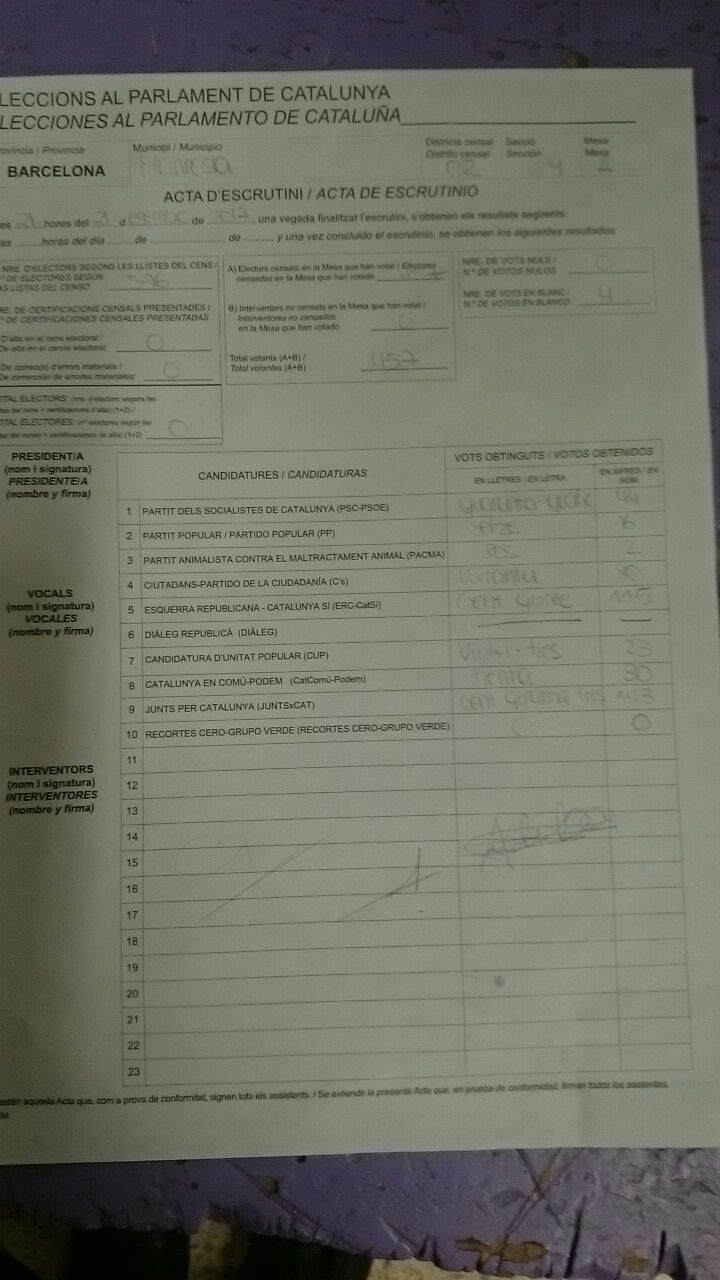 LECCIONS AL PARLAMENT DE CATALUNYA
LECCIONES AL PARLAMENTO DE CATALUÑA
rovíncia / Provincia Municipi / Municipio Districte censal Secció Mesa
Distrito censal Sección Mesa
BARCELONA Manresa 02 A
ACTA D'ESCRUTINI / ACTA DE ESCRUTINIO
es 21 hores del 21 d de 2017, una vegada finalitzat l'escrutini, s'obtenen els resultats següents:
as ........ horas del día ........ de ........ de ........, y una vez concluido el escrutinio, se obtienen los siguientes resultados:
NRE. D'ELECTORS SEGONS LES LLISTES DEL CENS /
º DE ELECTORES SEGÚN
AS LISTAS DEL CENSO
RE. DE CERTIFICACIONS CENSALS PRESENTADES /
º DE CERTIFICACIONES CENSALES PRESENTADAS
D'alta en el cens electoral /
De alta en el censo electoral: 0
De correcció d'errors materials /
De corrección de errores materiales: 0
OTAL ELECTORS: (nre. d'electors segons les
es del cens + certificacions d'alta) (1+2) /
OTAL ELECTORES: (nº electores según las
as del censo + certificaciones de alta) (1+2) 0
A) Electors censats en la Mesa que han votat / Electores
censados en la Mesa que han votado
B) Interventors no censats en la Mesa que han votat /
Interventores no censados
en la Mesa que han votado 0
Total votants (A+B) /
Total votantes (A+B) 457
NRE. DE VOTS NULS /
N.º DE VOTOS NULOS 0
NRE. DE VOTS EN BLANC /
N.º DE VOTOS EN BLANCO 4
PRESIDENT/A
(nom i signatura)
PRESIDENTE/A
(nombre y firma)
VOCALS
(nom i signatura)
VOCALES
(nombre y firma)
INTERVENTORS
(nom i signatura)
INTERVENTORES
(nombre y firma)
CANDIDATURES / CANDIDATURAS VOTS OBTINGUTS / VOTOS OBTENIDOS
EN LLETRES / EN LETRA EN XIFRES / EN NÚM.
1 PARTIT DELS SOCIALISTES DE CATALUNYA (PSC-PSOE) quaranta-quatre 44
2 PARTIT POPULAR / PARTIDO POPULAR (PP) setze 16
3 PARTIT ANIMALISTA CONTRA EL MALTRACTAMENT ANIMAL (PACMA) Dos 2
4 CIUTADANS-PARTIDO DE LA CIUDADANÍA (C's) Vuitanta 80
5 ESQUERRA REPUBLICANA - CATALUNYA SÍ (ERC-CatSí) Cent quinze 115
6 DIÀLEG REPUBLICÀ (DIÀLEG) —— —
7 CANDIDATURA D'UNITAT POPULAR (CUP) Vint-i-tres 23
8 CATALUNYA EN COMÚ-PODEM (CatComú-Podem) trenta 30
9 JUNTS PER CATALUNYA (JUNTSxCAT) Cent quaranta tres 143
10 RECORTES CERO-GRUPO VERDE (RECORTES CERO-GRUPO VERDE) 0 0
11
12
13
14
15
16
17
18
19
20
21
22
23
estén aquesta Acta que, com a prova de conformitat, signen tots els assistents. / Se extiende la presente Acta que, en prueba de conformidad, firman todos los asistentes.